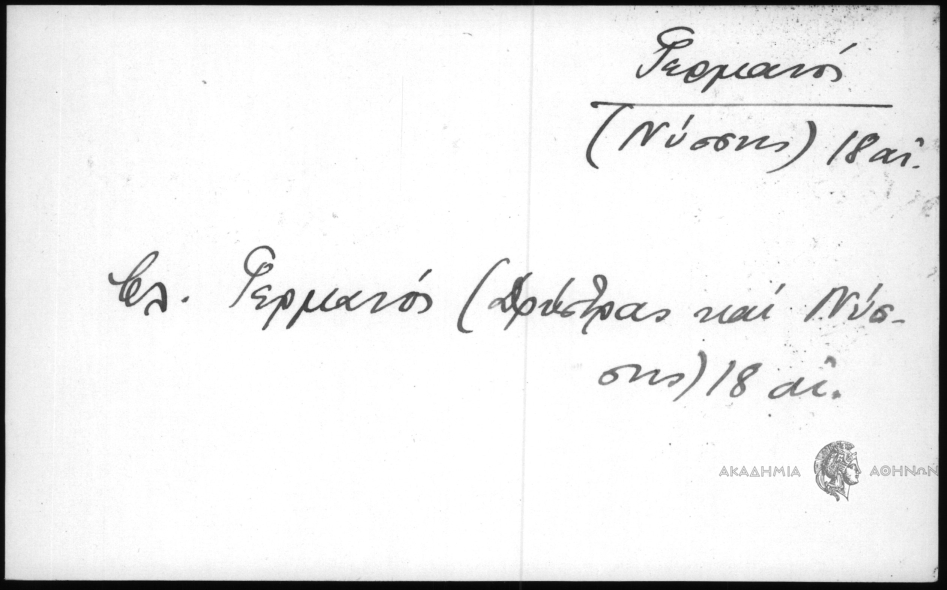 Γερμανός
(Νύσσης) 18 αἰ.
βλ. Γερμανός (Δρύστρας καί Νύσ-
σης) 18 αἰ.
ΑΚΑΔΗΜΙΑ ΑΘΗΝΩΝ